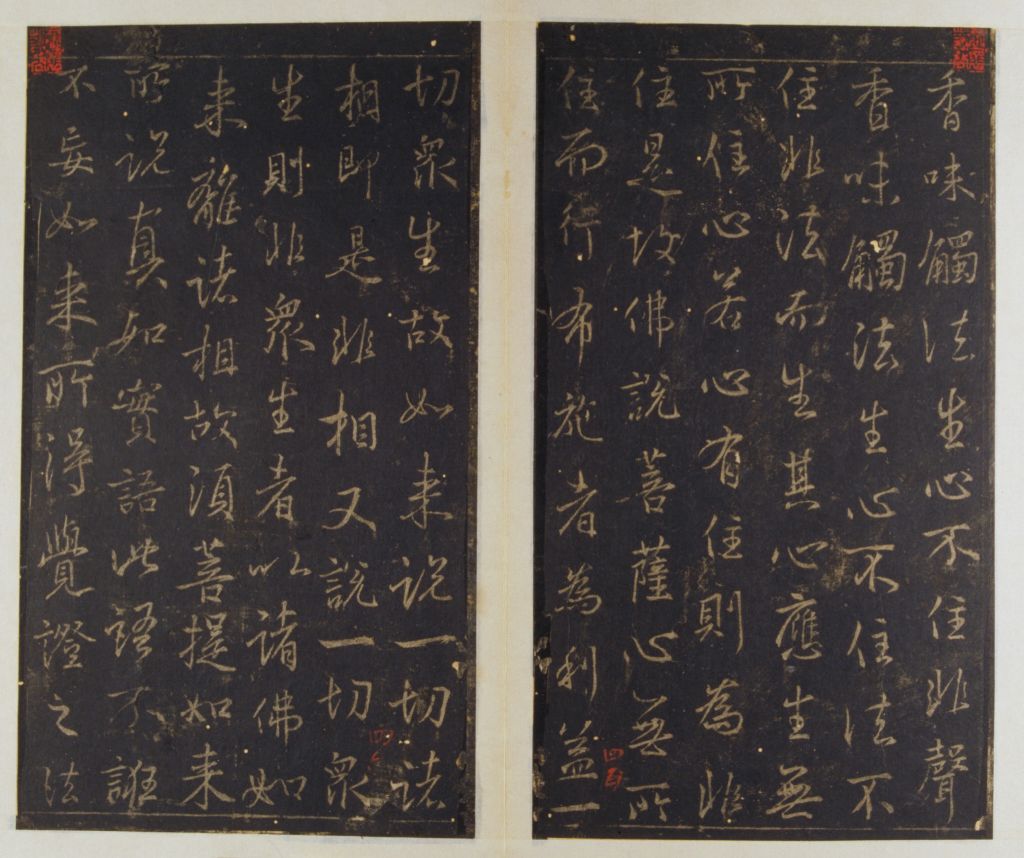 香味觸法生心不住非聲
香味觸法生心不住法不
住非法而生其心應生無
所住心若心有住則為非
住是故佛說菩薩心無所
住而行布施者為利益一
切眾生故如来說一切諸
相即是非相又說一切眾
生則非眾生者以諸佛如
来離諸相故須菩提如来
所說真如實語此語不誑
不妄如来所得覺證之法